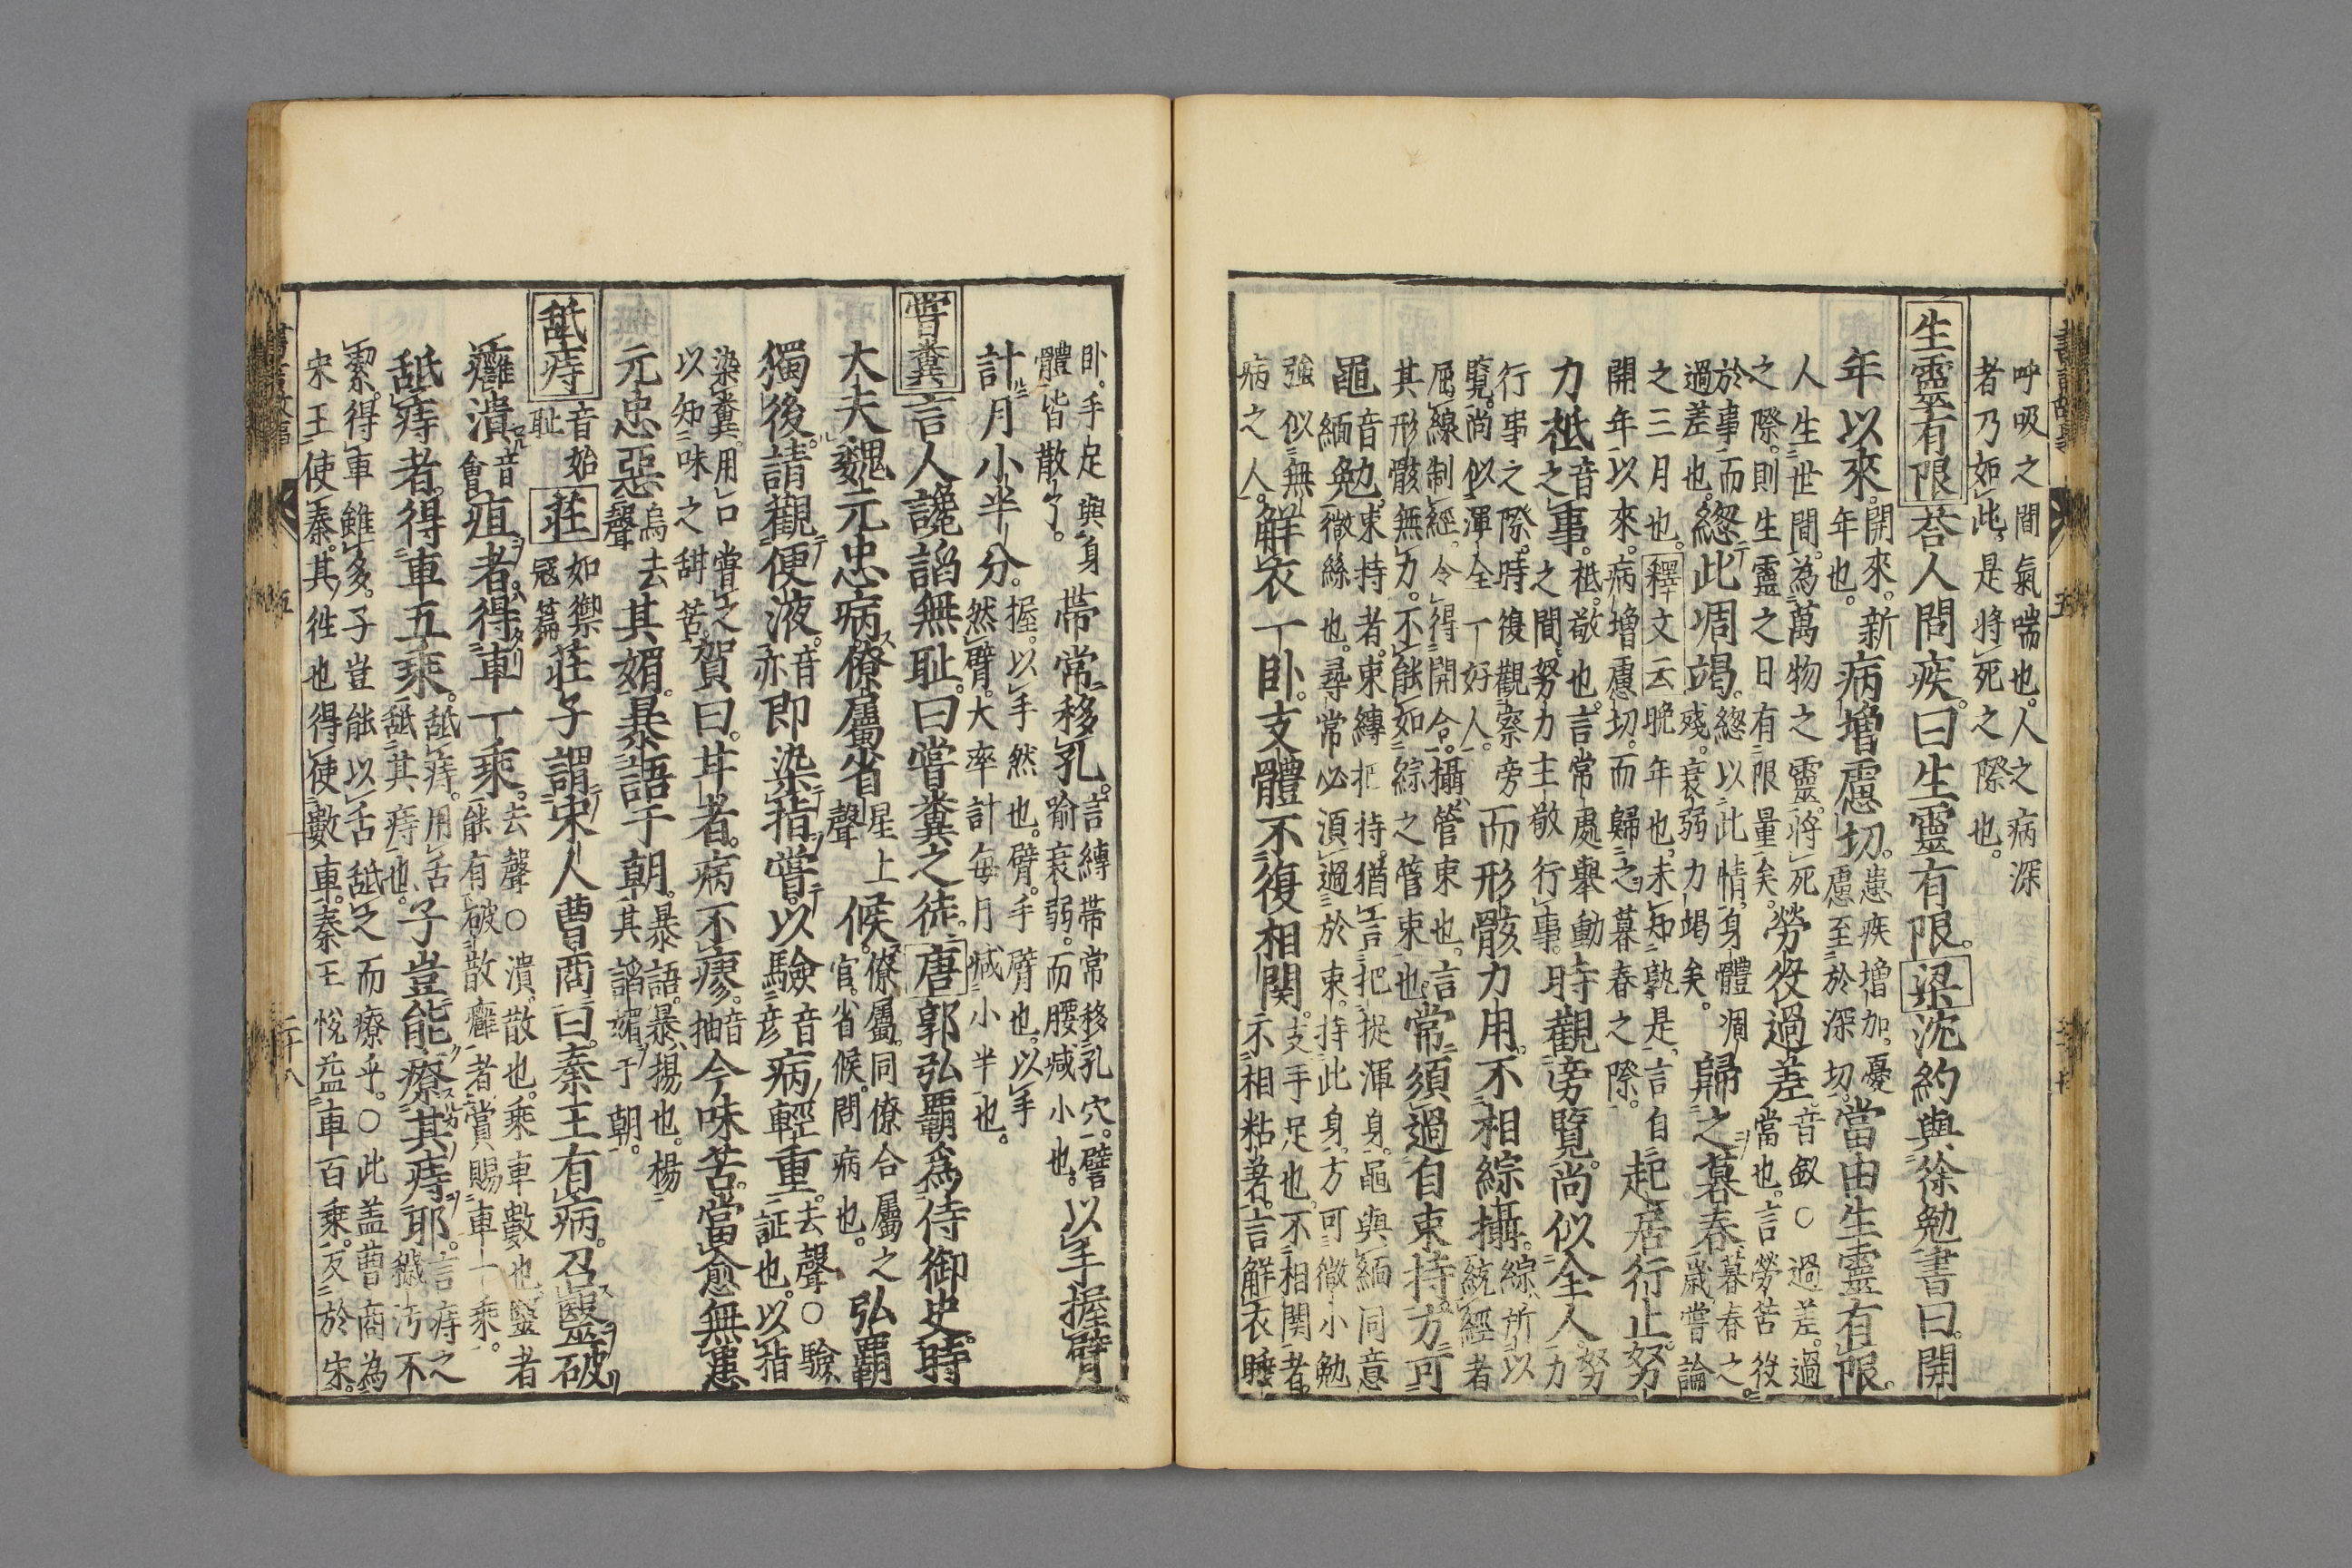 呼吸之間氣喘也。人之病深
者乃如此。是將死之際也。
生靈有限 荅人問疾。曰生靈有限。梁沈約與徐勉書曰。開
年以來。開來。新
年也。病增慮切。患疾增加。憂
慮至於深切。當由生靈有限。
人生世間。為萬物之靈。將死
之際。則生靈之日有限量矣。勞役過差。音釵○過差。過
當也。言勞苦役
於事而
過差也。緫此凋竭。緫以此情。身體凋
殘。衰弱力竭矣。歸之暮春。暮春之。
歲嘗論
之三月也。釋文云晚年也。未知孰是。言自
開年以來。病增慮切。而歸之暮春之際。起居行止。努
力祗音
之事。祗。敬也。言常處舉動
之間。努力主敬行事。時觀滂覽。尚似全人。努
力
行事之際。時復觀察旁
覽。尚似渾全丁好人。而形骸力用。不相綜攝。綜。所以
統經者
屈線制經。令得開合。攝。管束也。言
其形骸無力。不能如綜之管束也。常須過自束持。方可
黽音
緬勉。束持者。束縛把持。猶言把捉渾身。黽與緬同意
微絲也。尋常必須過於束。持此身。方可微小勉
強似無
病之人。解衣一卧。支體不復相関。支手足也。不相関者。
示相粘著。言解衣睡
卧。手足與身
體皆散了。帶常移孔。言縛帶常移孔穴。譬
喻衰弱。而腰减小也。以手握臂
計月小半分。握。以手然也。臂。手臂也。以手
然臂。大率計每月减小半也。
嘗糞 言人讒謟無恥。曰嘗糞之徒。唐郭弘霸為侍御史。時
大夫魏元忠病。僚屬省星上
聲候。僚屬。同僚合屬之
官。省候。問病也。弘霸
獨後。請觀便液。音
亦即染指嘗。以驗音
彦病輕重。去聲○驗。
証也。以指
染糞。用口嘗之
以知味之甜苦。賀曰。甘者。病不瘳。音
抽今味苦。當愈無患
元忠惡烏去
聲其媚。暴語于朝。暴語。暴。揚也。楊
其謟媚于朝。
舐痔 音始
恥 莊 如禦
冦篇 莊子謂宋人曹商。曰。秦王有病。召醫破
癰潰音
會疽者。得車一乘。去聲○潰。散也。乘車數也。醫者
能有破散癰者。賞賜車一乘。
舐痔者。得車五乘。舐痔。用舌
舐其痔也。子豈能療其痔耶。言痔之
穢汚不
潔。得車雖多。子豈能以舌舐之而療乎。○此盖曹商為
宋王使秦。其徃也得使數車。秦王悅益車百乘。反於宋。